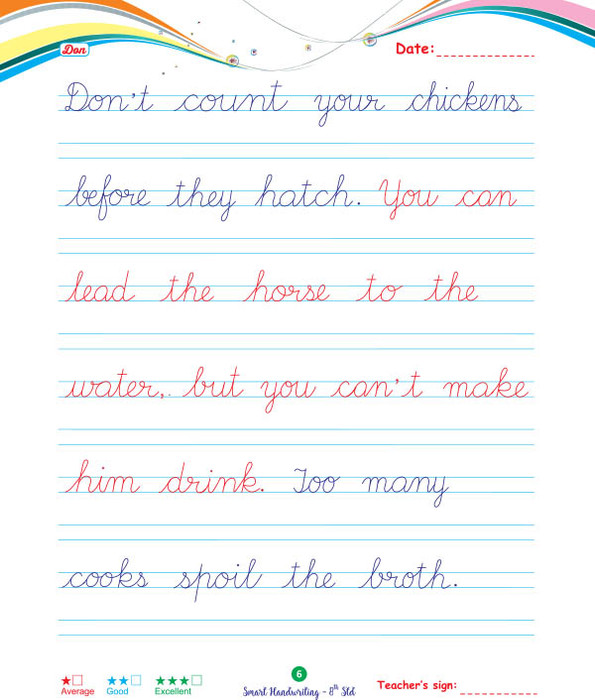 Don
Date:
Don't count your chickens
before they hatch. You can
lead the horse to the
water, but you can't make
him drink. Too many
cooks spoil the broth.
Average Good Excellent
6
Smart Handwriting - 8th Std
Teacher's sign: